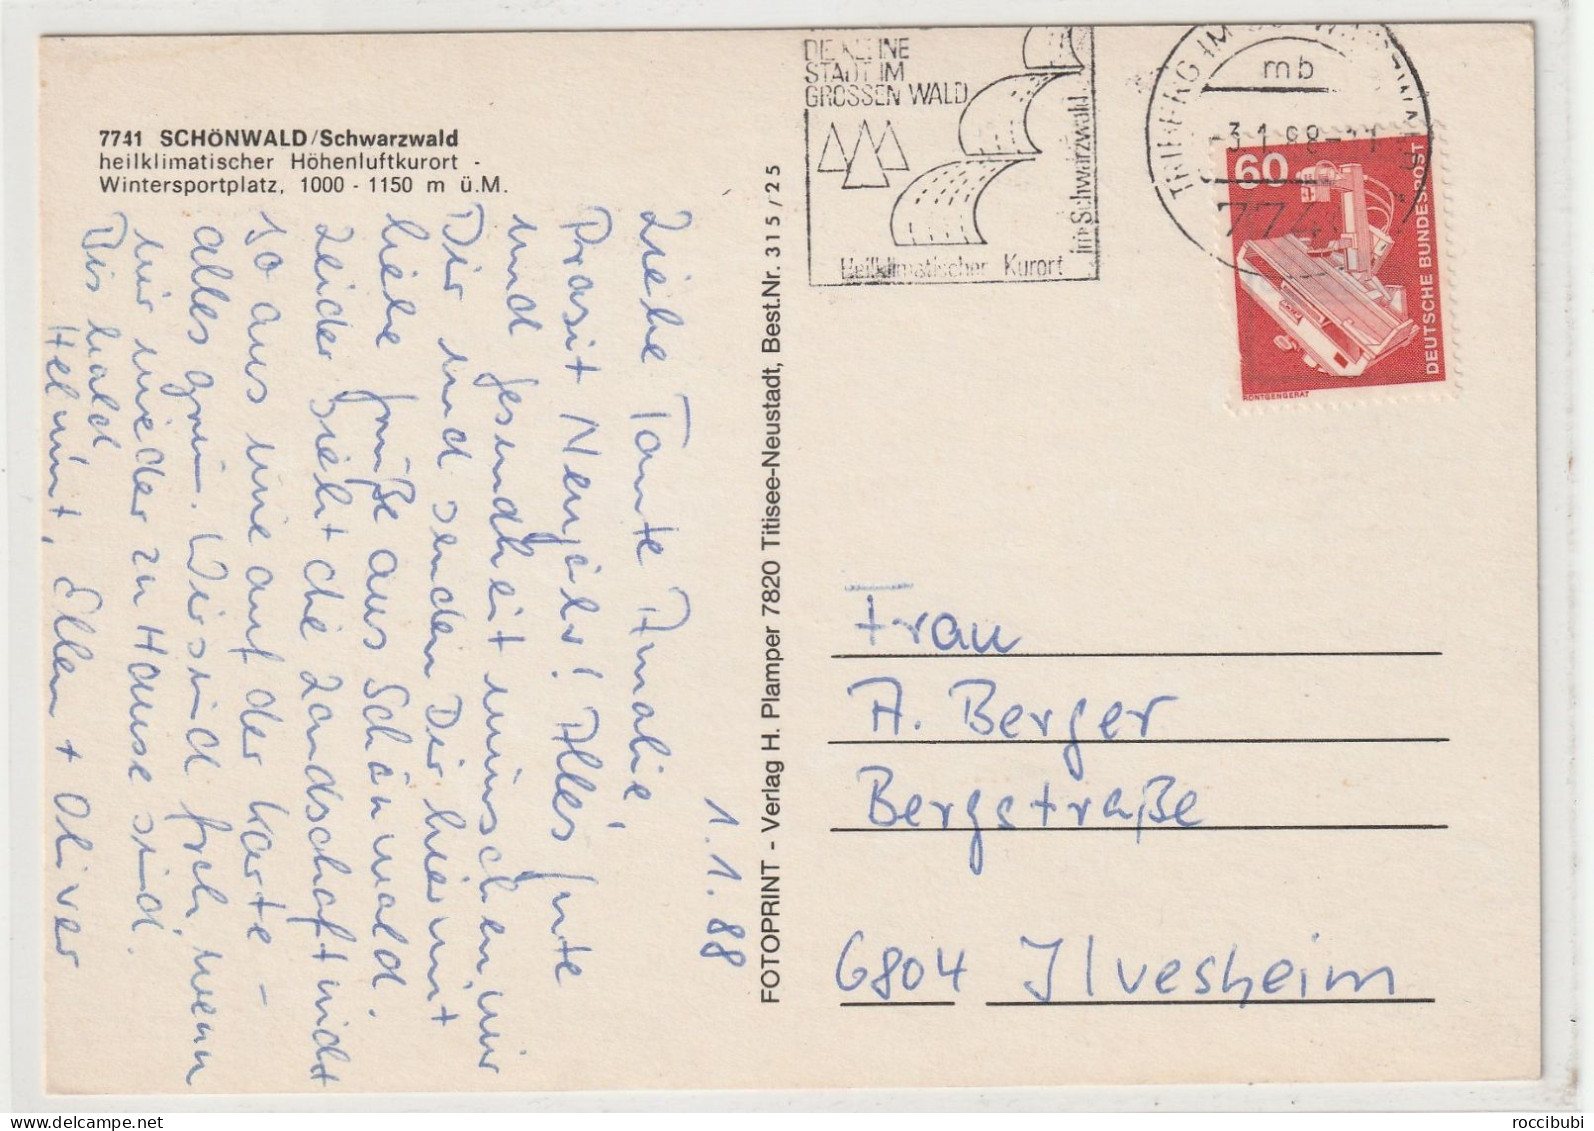 7741 SCHÖNWALD/Schwarzwald
heilklimatischer Höhenluftkurort -
Wintersportplatz, 1000 - 1150 m ü.M.
1.1.88
Liebe Tante Amalie,
Prosit Neujahr! Alles gute
und gesundheit wünschen wir
Dir und senden Dir hiermit
liebe grüße aus Schönwald.
Leider sieht die Landschaft nicht
so aus wie auf der Karte -
alles grün. Wir sind froh, wenn
wir wieder zu Hause sind.
Bis bald
Helmut, Ellen + Oliver
FOTOPRINT - Verlag H. Plamper 7820 Titisee-Neustadt, Best.Nr. 315/25
DIE KLEINE
STADT IM
GROSSEN WALD
Heilklimatischer Kurort
im Schwarzwald
TRIBERG IM SCHWARZWALD
mb
-3.1.88-11
7740
60
DEUTSCHE BUNDESPOST
RÖNTGENGERÄT
Frau
A. Berger
Bergstraße
6804 Ilvesheim
roccibubi